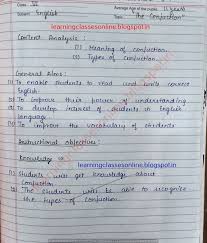 Class: VI
Average Age of Students: 11 years
Subject: English
Topic: "The Conjuction"
learningclassesonline.blogspot.in
Content Analysis :
(1) Meaning of conjuction
(2) Types of conjuction.
General Aims:
(1) To enable students to read and write correct
English.
(2) To improve their power of understanding
(3) To develop interest of students in English
language.
(4) To improve the vocabulary of students
Instructional objectives:
Knowledge :-
learningclassesonline.blogspot.in
(1) Students will get knowledge about
Conjuction.
(2) The Students will be able to recognize
the types of Conjuction.